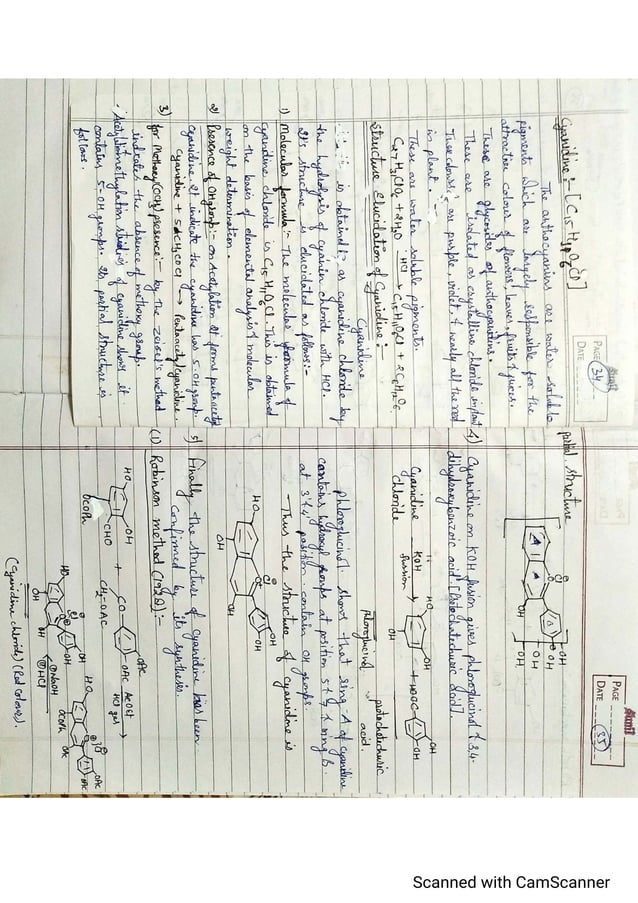 PAGE 34
DATE
Cyanidine :- [C15H11O6Cl]
The anthocyanins are water soluble
pigments which are largely responsible for the
attractive colour of flowers, leaves, fruits & juices.
These are glycosides of anthocyanidins.
These are isolated as crystalline chloride in plant
These colours are purple, violet, & nearly all the red
in plant.
These are water soluble pigments.
C27H31ClO16 + 2H2O HCl → C15H11O6Cl + 2C6H12O6
Cyanidine
Structure Elucidation of Cyanidine :-
it is obtained as cyanidine chloride by
the hydrolysis of cyanin chloride with HCl.
It's structure is elucidated as follows:-
1) Molecular formula :- The molecular formula of
cyanidine chloride is C15H11O6Cl. This is obtained
on the basis of elemental analysis & molecular
weight determination.
2) Presence of OH group :- On acetylation it forms pentaacetyl
cyanidine. It indicate the cyanidine has 5-OH group.
cyanidine + 5CH3COCl → Pentaacetylcyanidine.
3) for Methoxy(OCH3) presence :- by the Zeisel's method
indicates the absence of methoxy group.
studies of cyanidine shows it
contains 5-OH groups. Its partial structure is
follows.
PAGE 35
DATE
partial structure
Cl
OH
OH
OH
OH
4) Cyanidine on KOH fusion gives phloroglucinol & 3,4-
dihydroxybenzoic acid [Protocatechuic acid]
Cyanidine KOH → HO OH + HOOC OH
chloride fusion OH OH
phloroglucinol protocatechuic
acid.
phloroglucinol shows that ring-A of cyanidine
contains hydroxyl groups at position 5 & 7 & ring B
at 3' & 4' position contain OH groups.
- Thus the structure of cyanidine is
Cl
HO
OH
OH
OH
OH
5) Finally the structure of cyanidine has been
confirmed by its synthesis.
(1) Robinson method (1928) :-
HO OH CHO OCOPh + CO CH2-OAc OAc OAc AcOEt HCl gas →
HO OCOPh OAc OAc OAc
NaOH
HCl
HO OH OH OH OH
(Cyanidine chloride) (Red colour).
Scanned with CamScanner